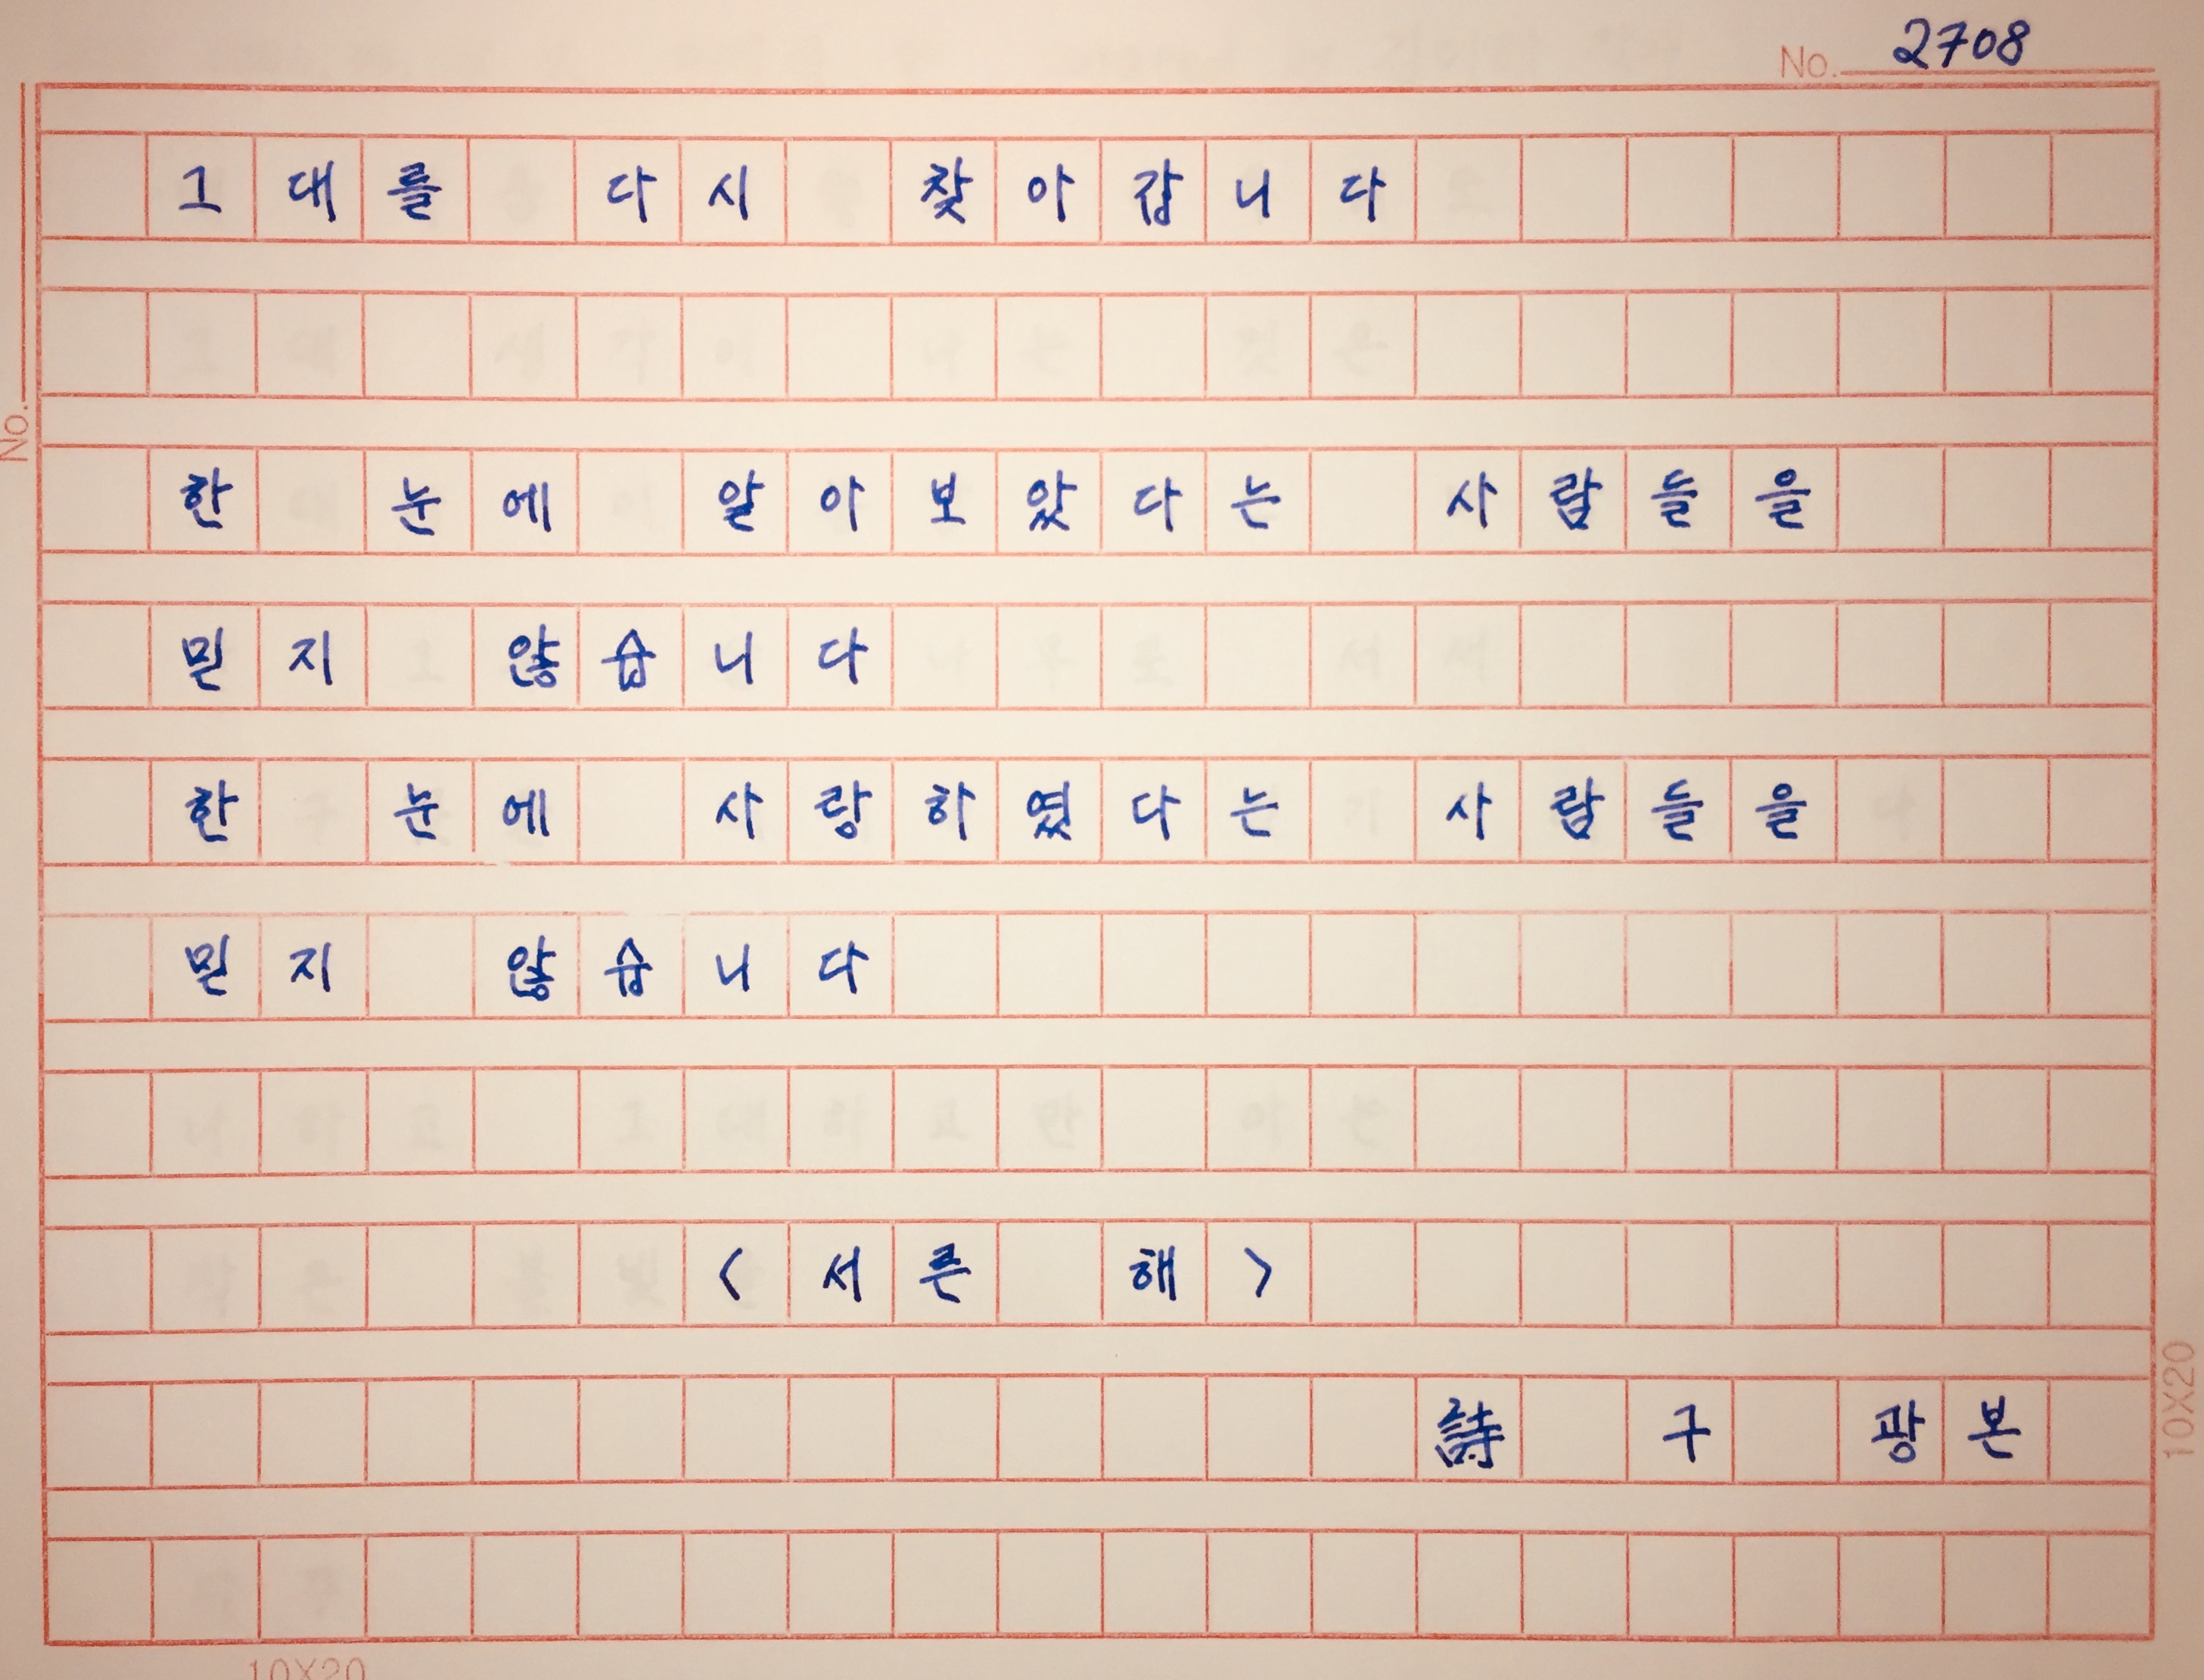 No. 2708
그대를 다시 찾아갑니다
No.
한 눈에 알아보았다는 사람들을
믿지 않습니다
한 눈에 사랑하였다는 사람들을
믿지 않습니다
<서른 해>
詩 구 광본
10X20
10X20